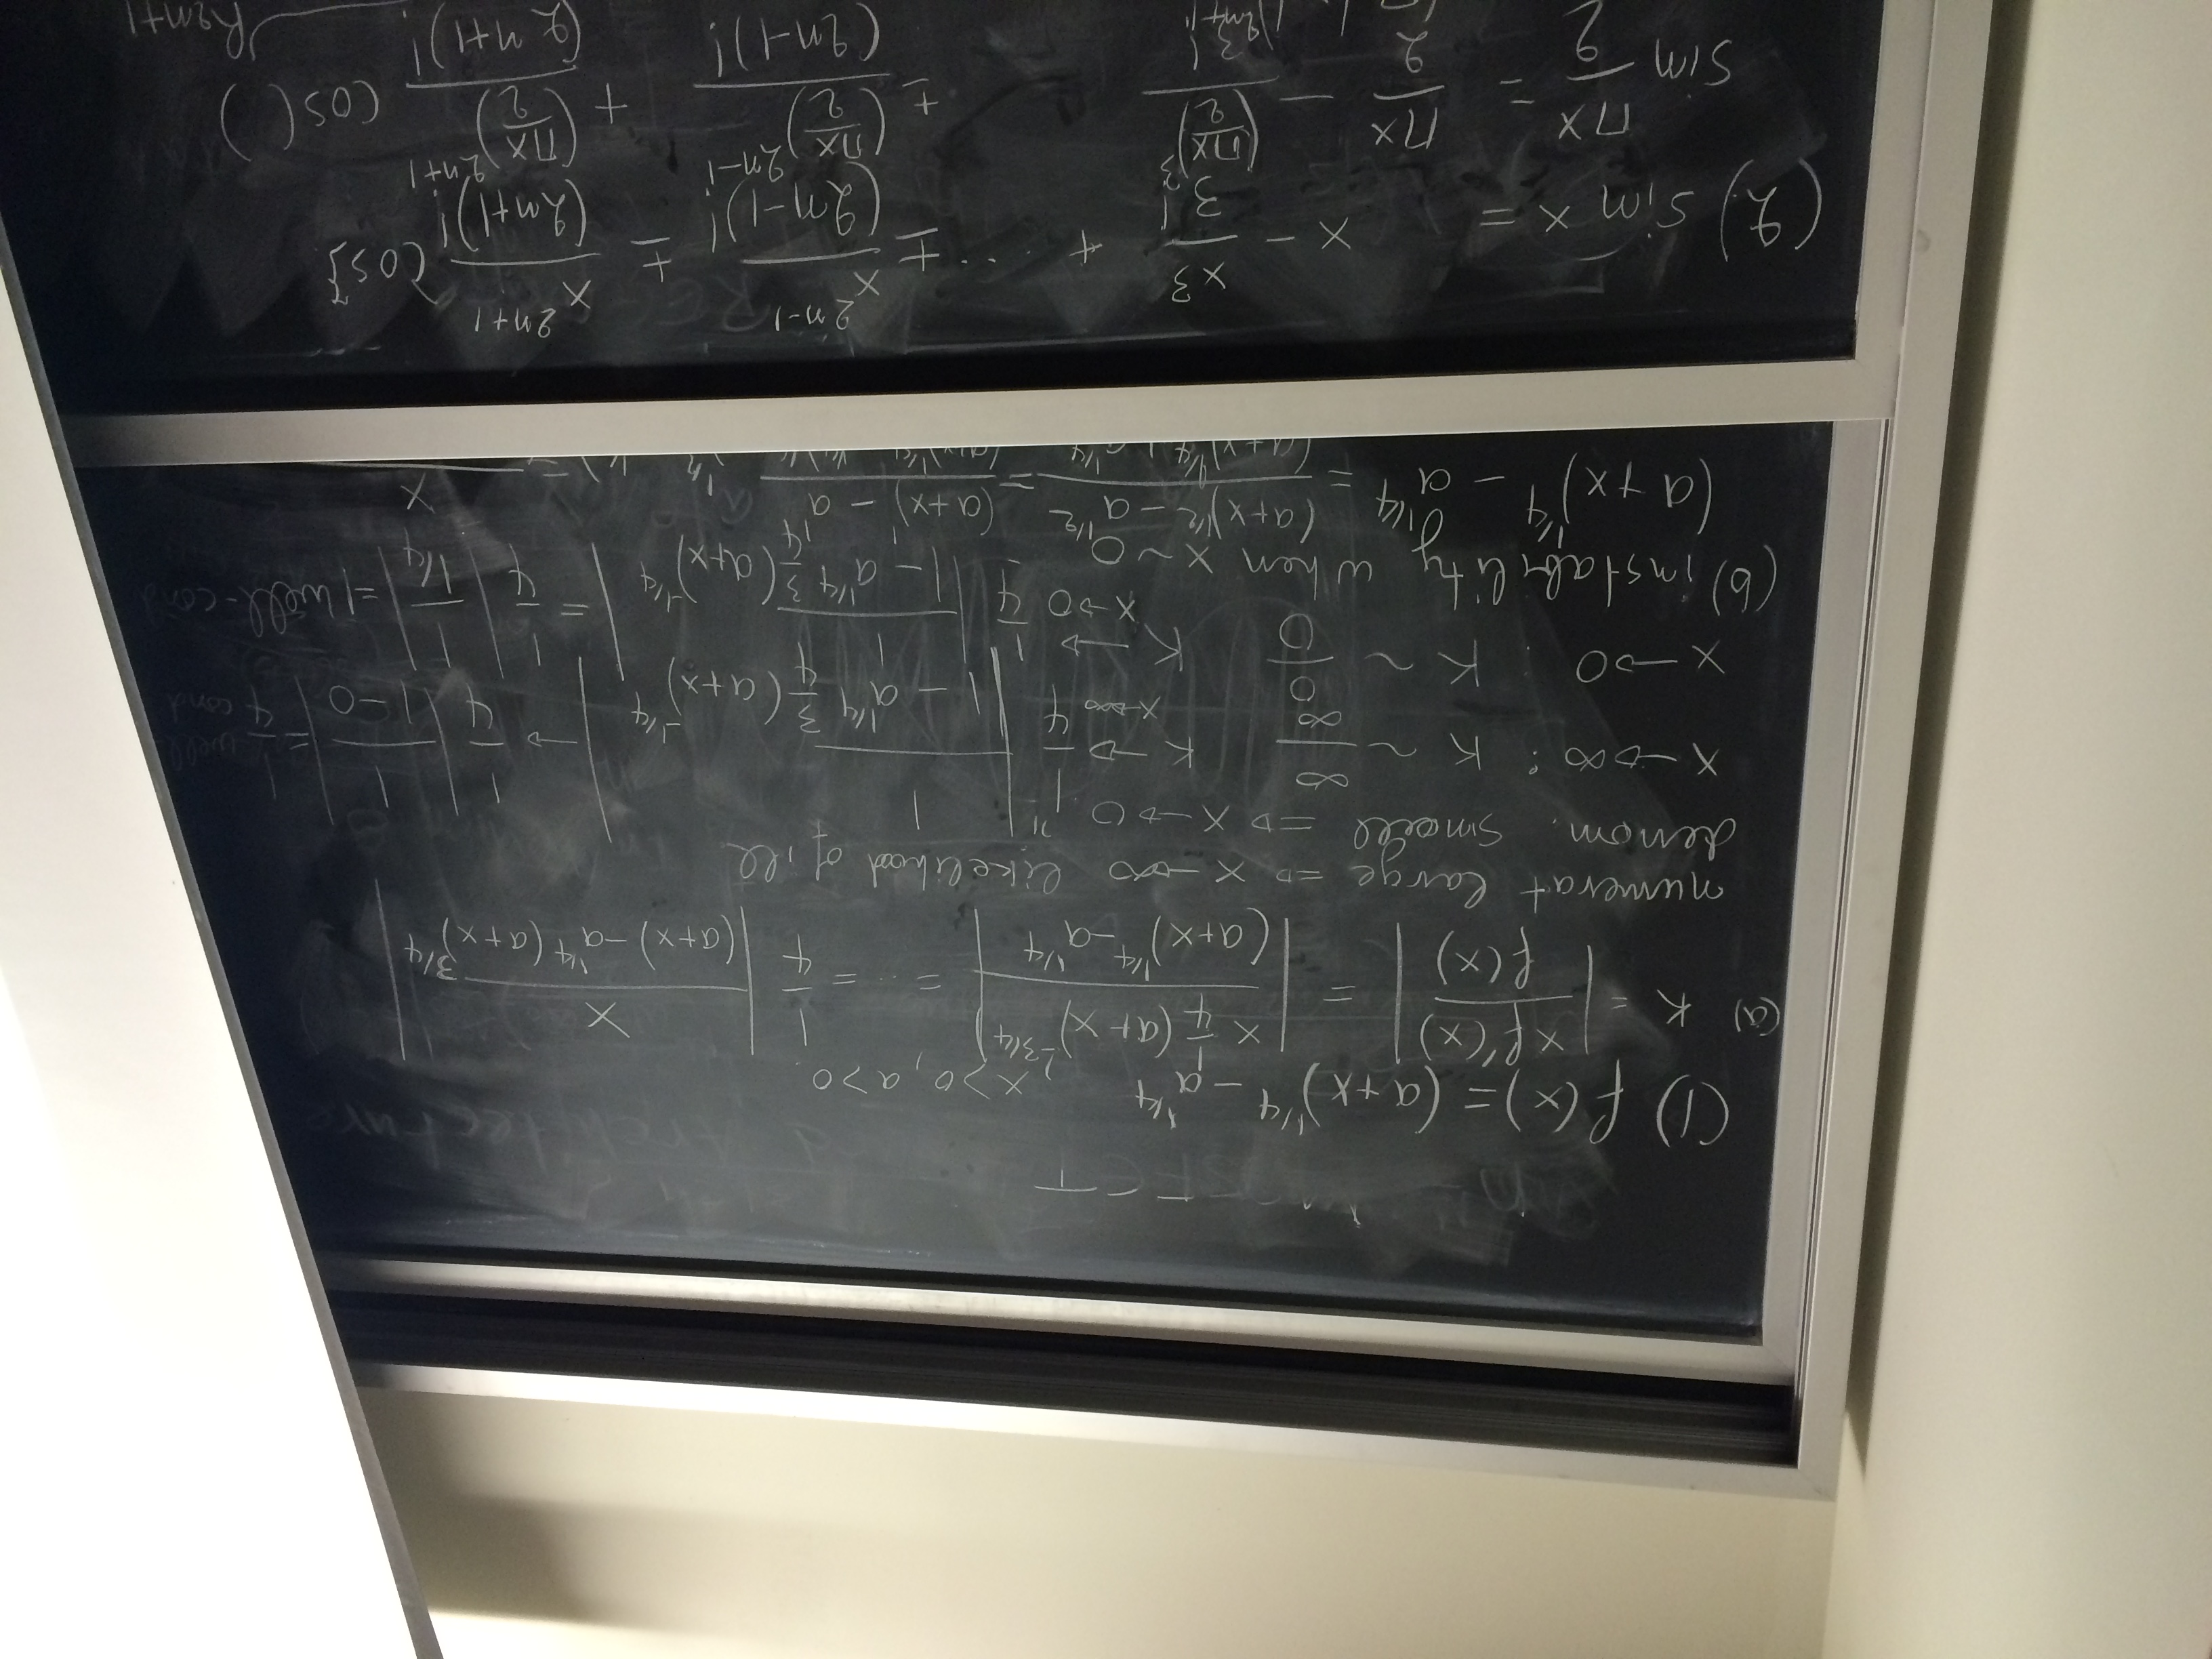 MOSFET
Architecture
(1) f(x) = (a+x)^{1/4} - a^{1/4}, x>0, a>0
(a) K = |x f'(x) / f(x)| = |x 1/4 (a+x)^{-3/4} / ((a+x)^{1/4} - a^{1/4})| = ... = 1/4 |x / ((a+x) - a^{1/4} (a+x)^{3/4})|
numerat large ⇒ x → ∞ likelihood of ill
denom. small ⇒ x → 0 "
x → ∞ : K ~ ∞/∞ K →_{x→∞} 1/4 |1 / (1 - a^{1/4} 3/4 (a+x)^{-1/4})| → 1/4 |1 / (1-0)| = 1/4 well-cond
x → 0 : K ~ 0/0 K →_{x→0} 1/4 |1 / (1 - a^{1/4} 3/4 (a+x)^{-1/4})| = 1/4 |1 / (1/4)| = 1 well-cond
(b) instability when x ~ 0
(a+x)^{1/4} - a^{1/4} = ((a+x)^{1/2} - a^{1/2}) / ((a+x)^{1/4} + a^{1/4}) = ((a+x)^1 - a^1) / = x /
(2) sin x = x - x^3/3! + ... ± x^{2n-1}/(2n-1)! ± x^{2n+1}/(2n+1)! cos ξ
sin πx/2 = πx/2 - (πx/2)^3/3! ± (πx/2)^{2n-1}/(2n-1)! + (πx/2)^{2n+1}/(2n+1)! cos( )
R_{2n+1}